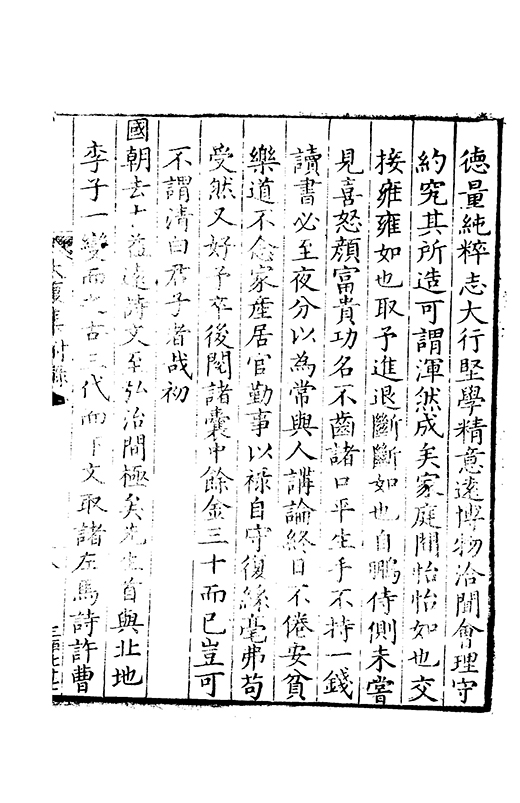 德量純粹志大行堅學精意遠博物洽聞會理守
約究其所造可謂渾然成矣家庭間怡怡如也交
接雍雍如也取予進退斷斷如也自鵬侍側未嘗
見喜怒顏富貴功名不齒諸口平生手不持一錢
讀書必至夜分以為常與人講論終日不倦安貧
樂道不念家產居官勤事以祿自守復絲毫弗苟
受然又好予卒後閱諸囊中餘金三十而已豈可
不謂清白君子者哉初
國朝去古益遠詩文至弘治間極矣先生首與北地
李子一變而之古三代而下文取諸左馬詩許曹
大復集附錄